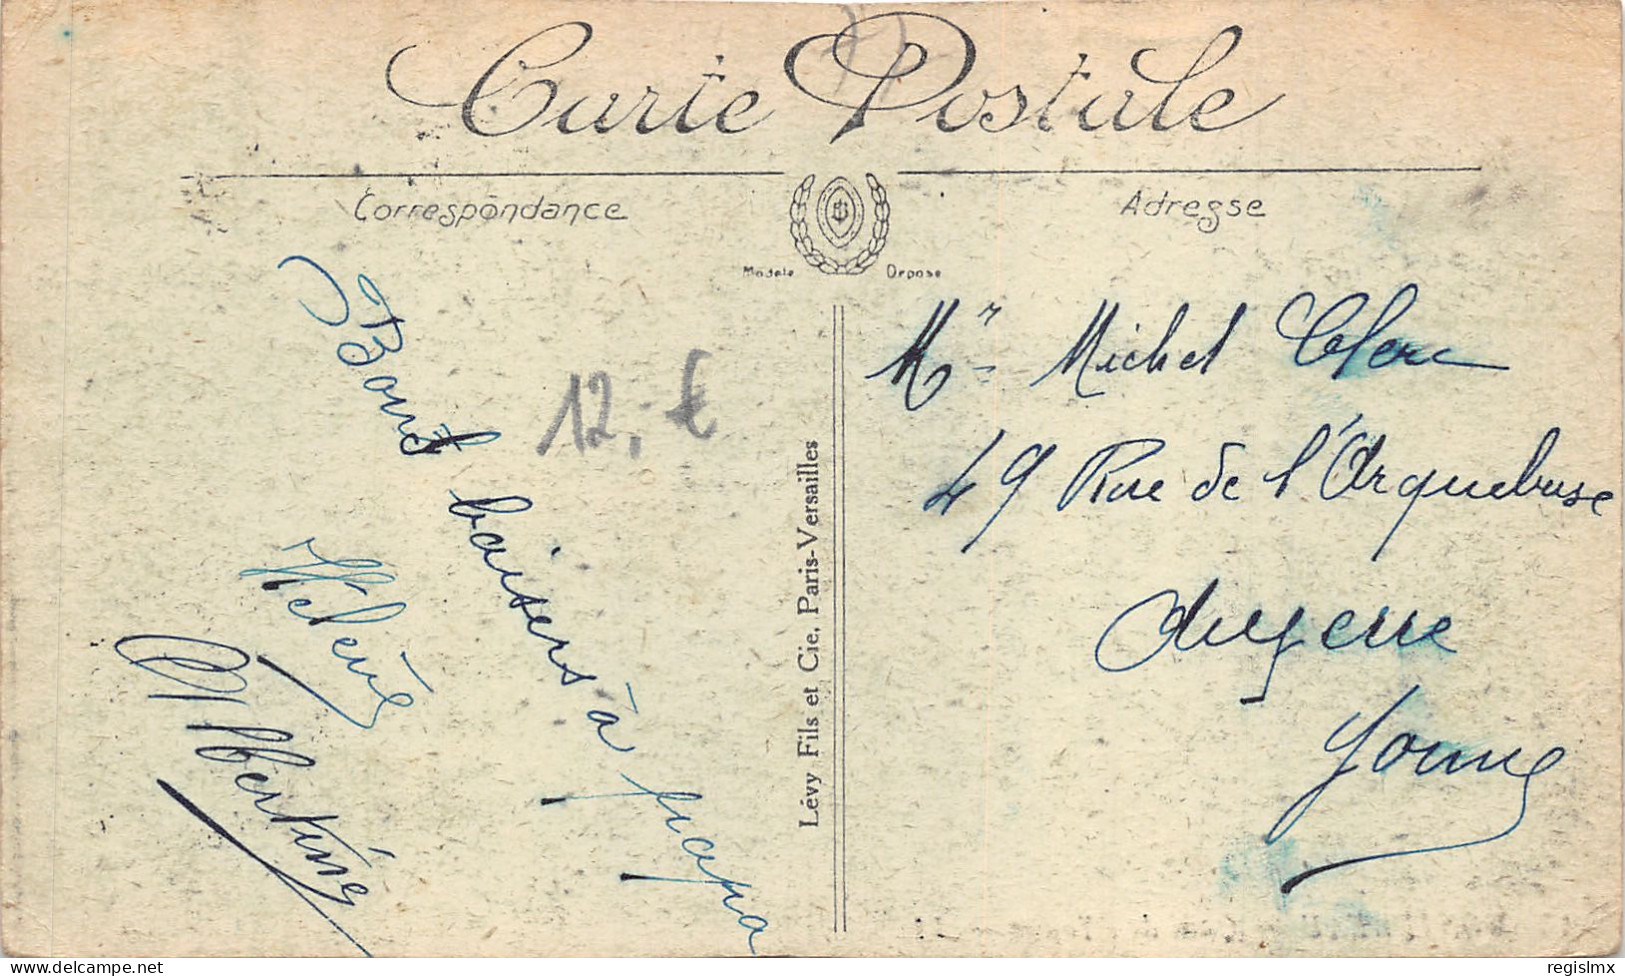 Carte Postale
Correspondance
Adresse
Modèle Déposé
Bons baisers à papa
Hélène
Albertine
12,-€
Lévy Fils et Cie, Paris-Versailles
Mr Michel Clerc
49 Rue de l'Arquebuse
Auxerre
Yonne
regislmx